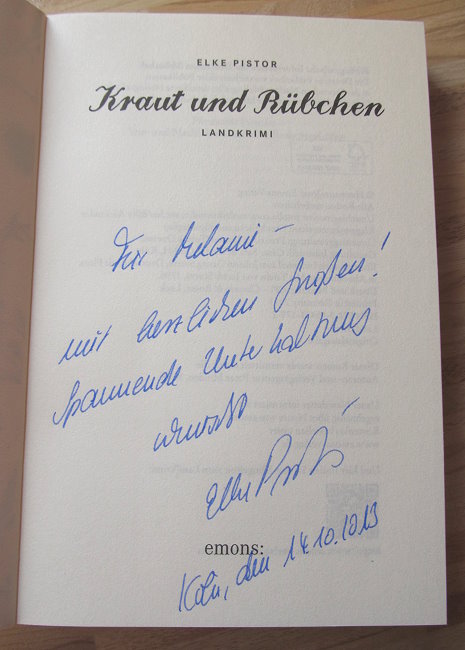 ELKE PISTOR
Kraut und Rübchen
LANDKRIMI
Für Melanie –
mit herzlichen Grüßen!
Spannende Unterhaltung
wünscht
Elke Pistor
emons:
Köln, den 14.10.2013